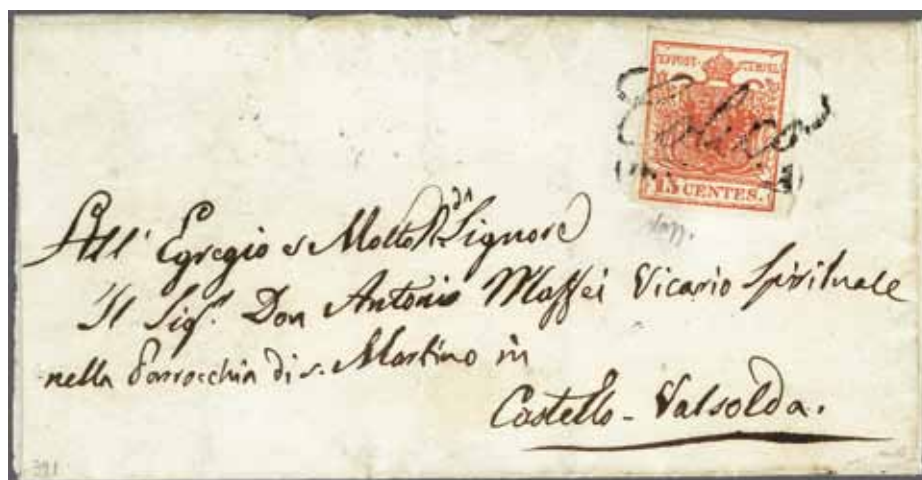 K.K.POST-STEMPEL
Colico
15 CENTES.
All' Egregio e Molto R.do Signore
Il Sig.r Don Antonio Maffei Vicario Spirituale
nella Parrocchia di s. Martino in
Castello - Valsolda.
391